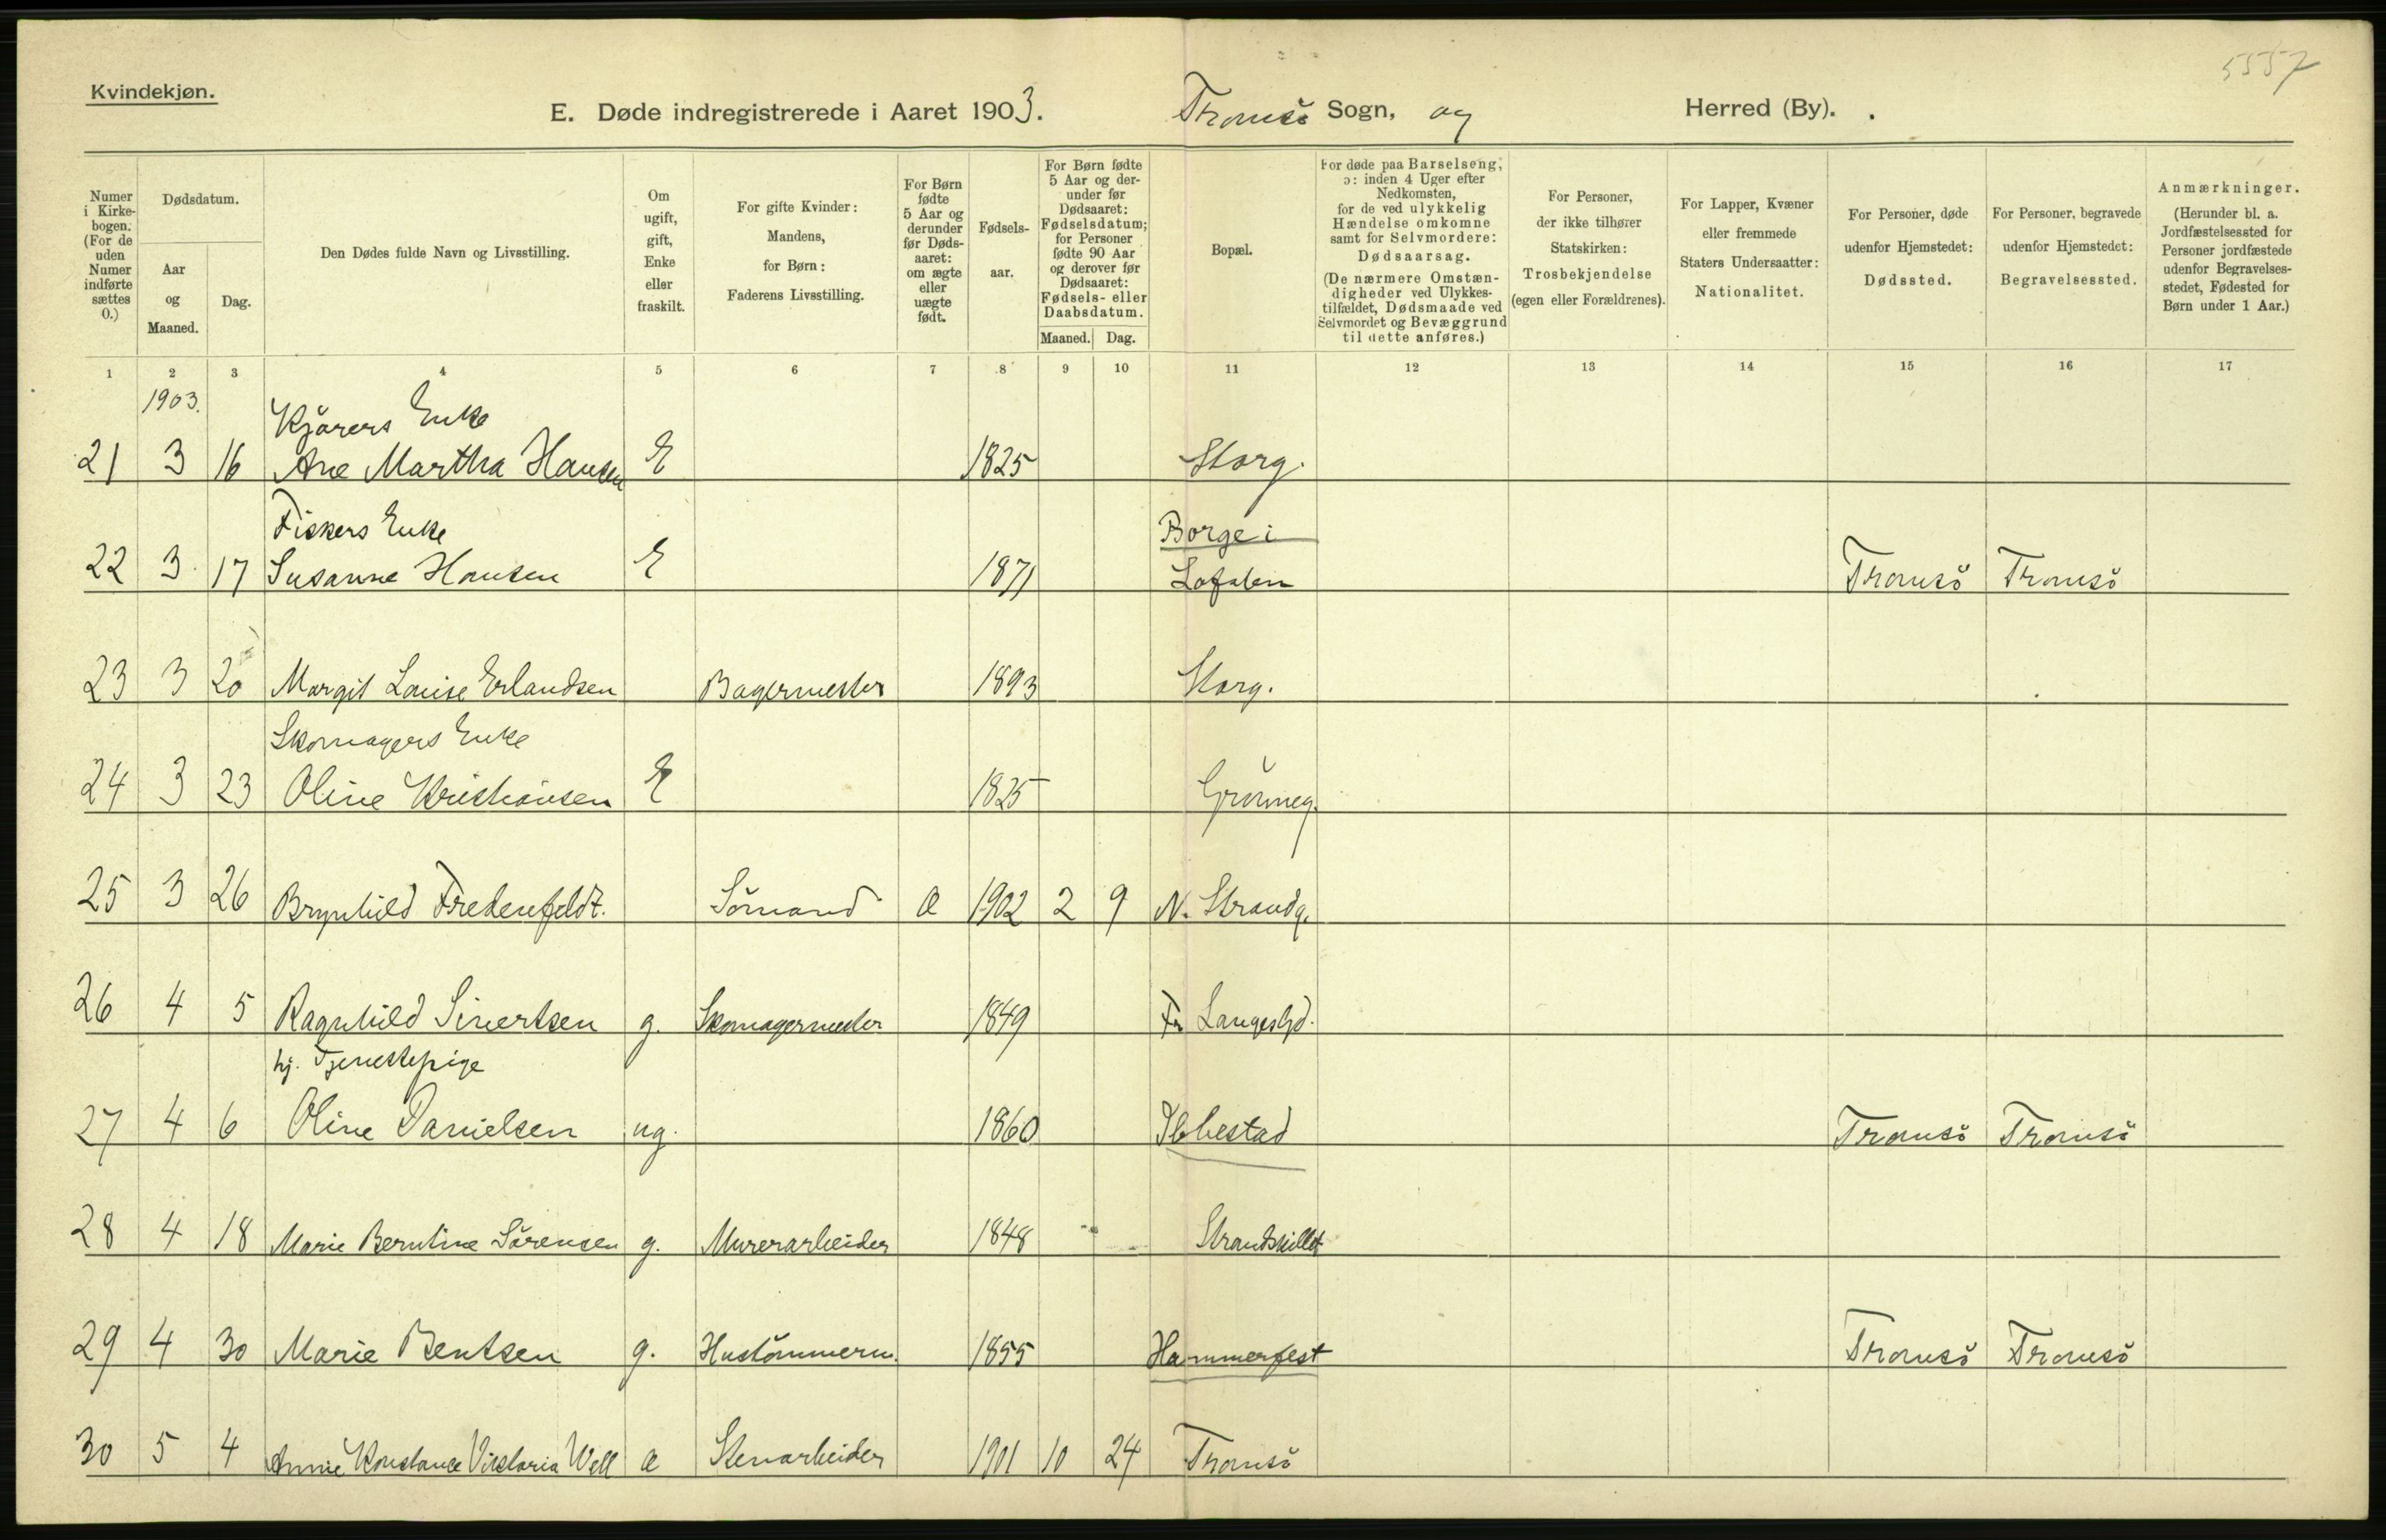 5557
Kvindekjøn.
E. Døde indregistrerede i Aaret 1903. Tromsö Sogn, og Herred (By).
Numer i Kirke-bogen. (For de uden Numer indførte sættes 0.)
Dødsdatum.
Aar og Maaned.
Dag.
Den Dødes fulde Navn og Livsstilling.
Om ugift, gift, Enke eller fraskilt.
For gifte Kvinder: Mandens, for Børn: Faderens Livsstilling.
For Børn fødte 5 Aar og derunder før Døds-aaret: om ægte eller uægte født.
Fødsels-aar.
For Børn fødte 5 Aar og der-under før Dødsaaret: Fødselsdatum; for Personer fødte 90 Aar og derover før Dødsaaret: Fødsels- eller Daabsdatum.
Maaned. Dag.
Bopæl.
For døde paa Barselseng, ɔ: inden 4 Uger efter Nedkomsten, for de ved ulykkelig Hændelse omkomne samt for Selvmordere: Dødsaarsag. (De nærmere Omstæn-digheder ved Ulykkes-tilfældet, Dødsmaade ved Selvmordet og Bevæggrund til dette anføres.)
For Personer, der ikke tilhører Statskirken: Trosbekjendelse (egen eller Forældrenes).
For Lapper, Kvæner eller fremmede Staters Undersaatter: Nationalitet.
For Personer, døde udenfor Hjemstedet: Dødssted.
For Personer, begravede udenfor Hjemstedet: Begravelsessted.
Anmærkninger. (Herunder bl. a. Jordfæstelsessted for Personer jordfæstede udenfor Begravelses-stedet, Fødested for Børn under 1 Aar.)
1 2 3 4 5 6 7 8 9 10 11 12 13 14 15 16 17
1903.
Kjörers Enke
21 3 16 Ane Martha Hansen E 1825 Storg.
Fiskers Enke Borge i
22 3 17 Susanne Hansen E 1871 Lofoten Tromsö Tromsö
23 3 20 Margit Louise Erlandsen Bagermester 1893 Storg.
Skomagers Enke
24 3 23 Oline Kristiansen E 1825 Grönneg.
25 3 26 Brynhild Fredenfeldt. Sömand a 1902 2 9 N. Strandg.
26 4 5 Ragnhild Sivertsen g. Skomagermester 1849 Fr Langesgd.
hj. Tjenestepige
27 4 6 Oline Danielsen ug. 1860 Ibbestad Tromsö Tromsö
28 4 18 Marie Berntine Sörensen g. Murerarbeider 1848 Strandskillet
29 4 30 Marie Bentsen g. Hustömmerm. 1855 Hammerfest Tromsö Tromsö
30 5 4 Annie Konstance Viktoria Well a Stenarbeider 1901 10 24 Tromsö